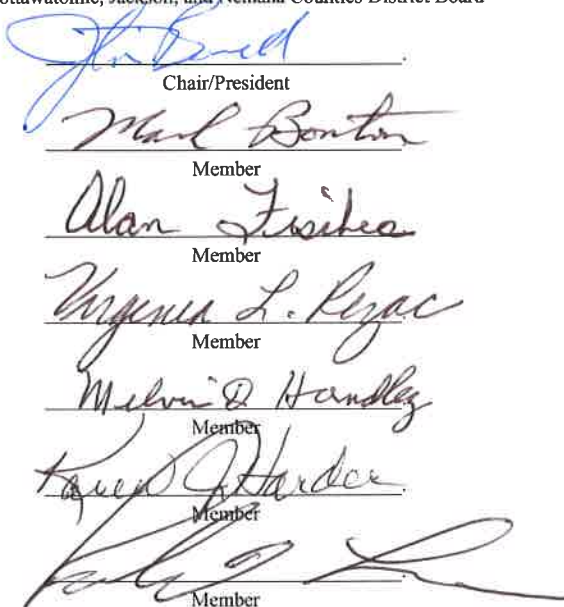 ottawatomie, Jackson, and Nemaha Counties District Board
Chair/President
Mark
Member
Alan
Member
Virginia L. Rezac
Member
Melvin D Handley
Member
Karen J Harder
Member
Member